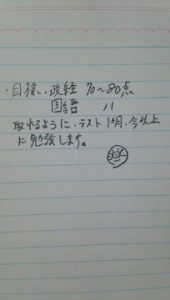 ・目標、政経 70〜80点
国語 〃
取れるように、ラスト1ヶ月、今以上
に勉強します。